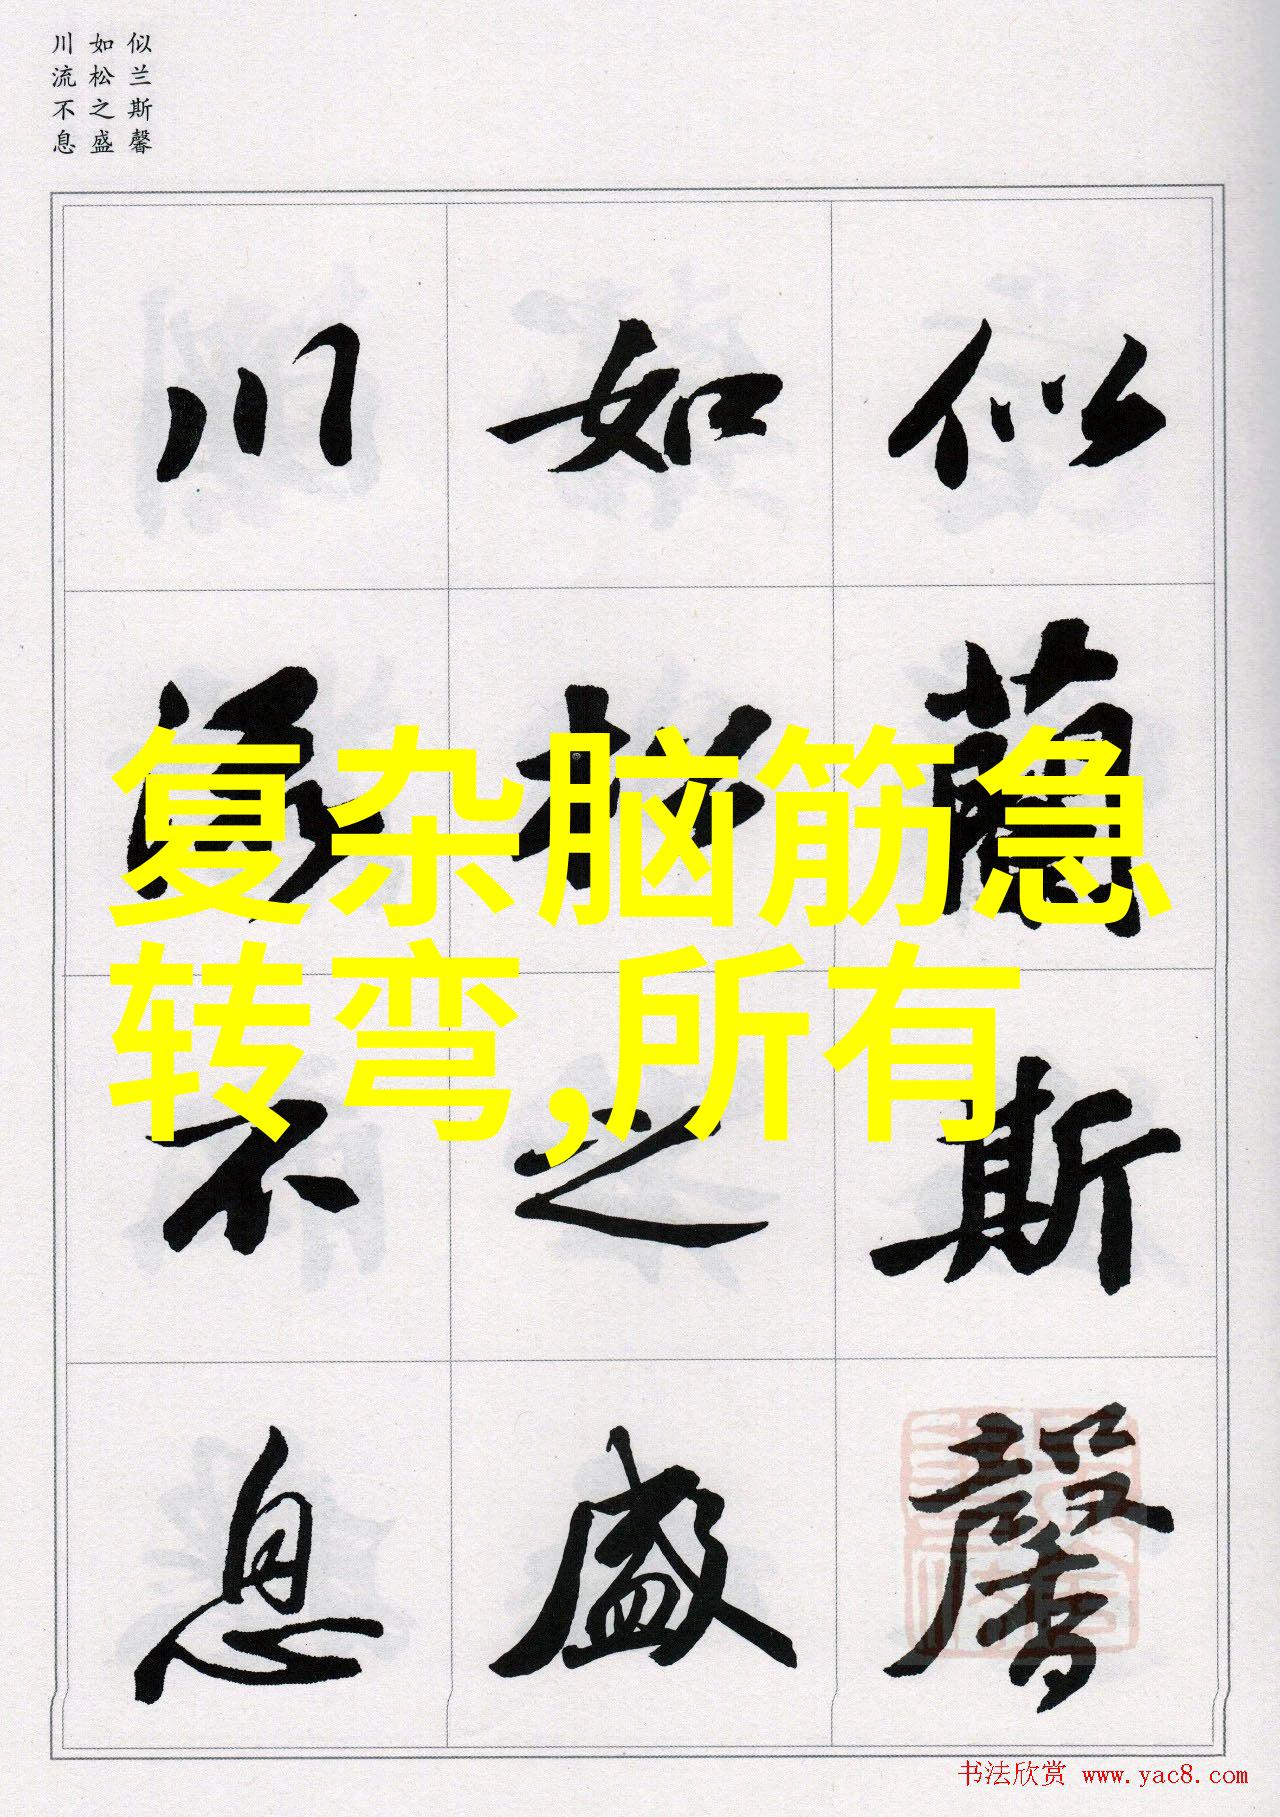 似兰斯馨
如松之盛
川流不息
似蘭斯馨
如松之盛
川流不息
复杂脑筋急
转弯,所有
书法欣赏 www.yac8.com